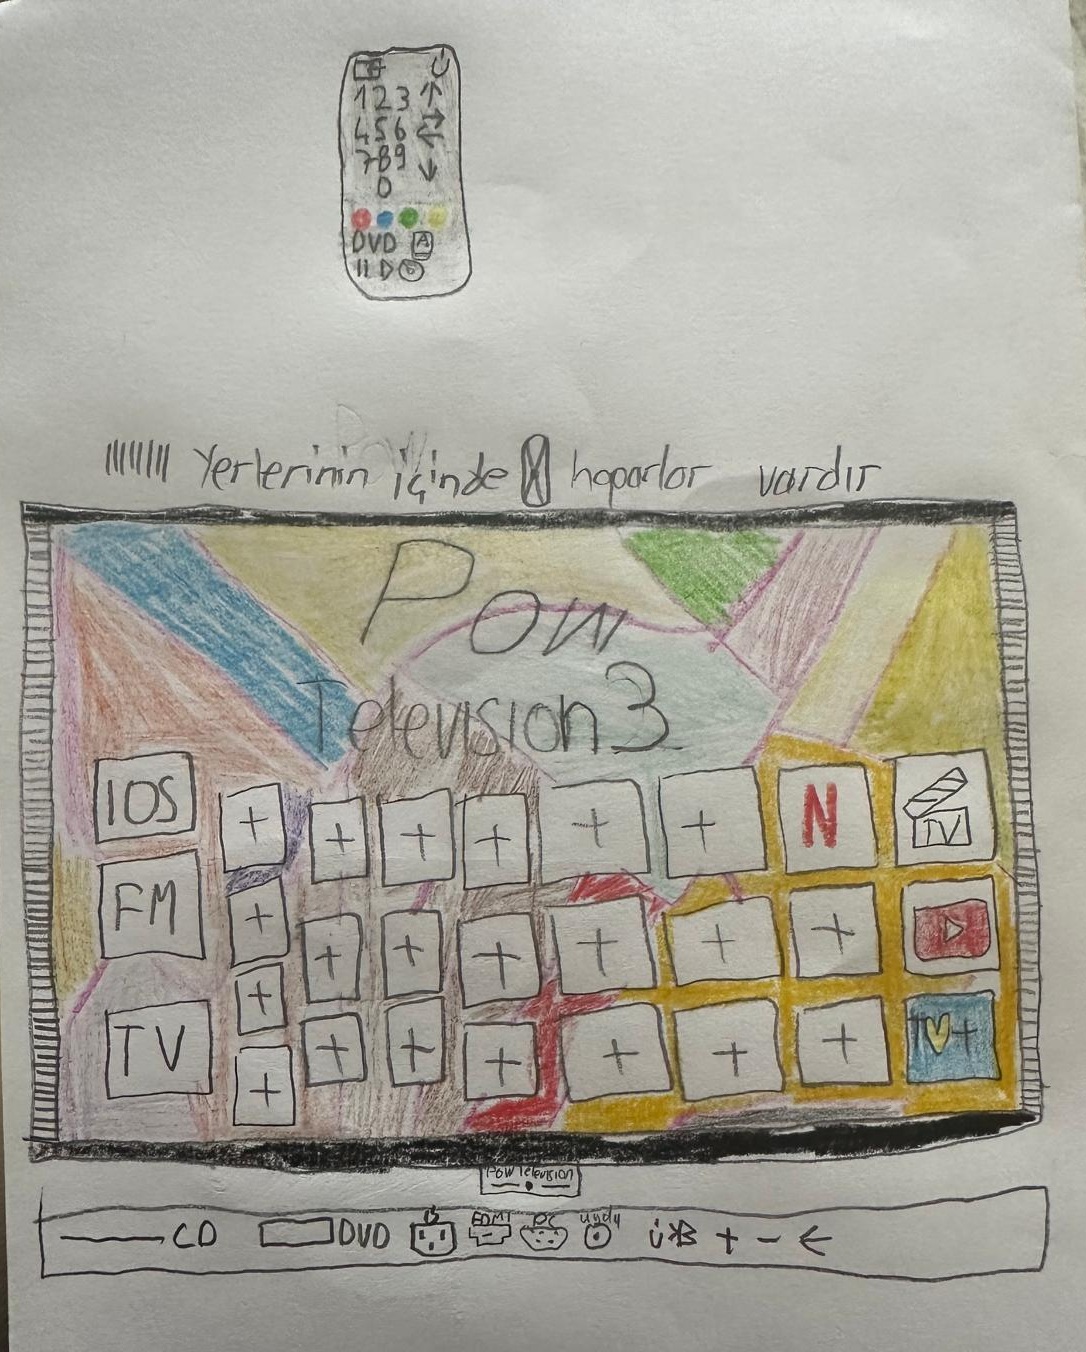 1 2 3
4 5 6
7 8 9
0
DVD A
Yerlerinin içinde hoparlor vardır
Pow
Television 3
IOS
+ + + + + + N TV
FM
+ + + + + + +
+
TV
+ + + + + + TV+
+
Pow Television
CD DVD PC + - ←